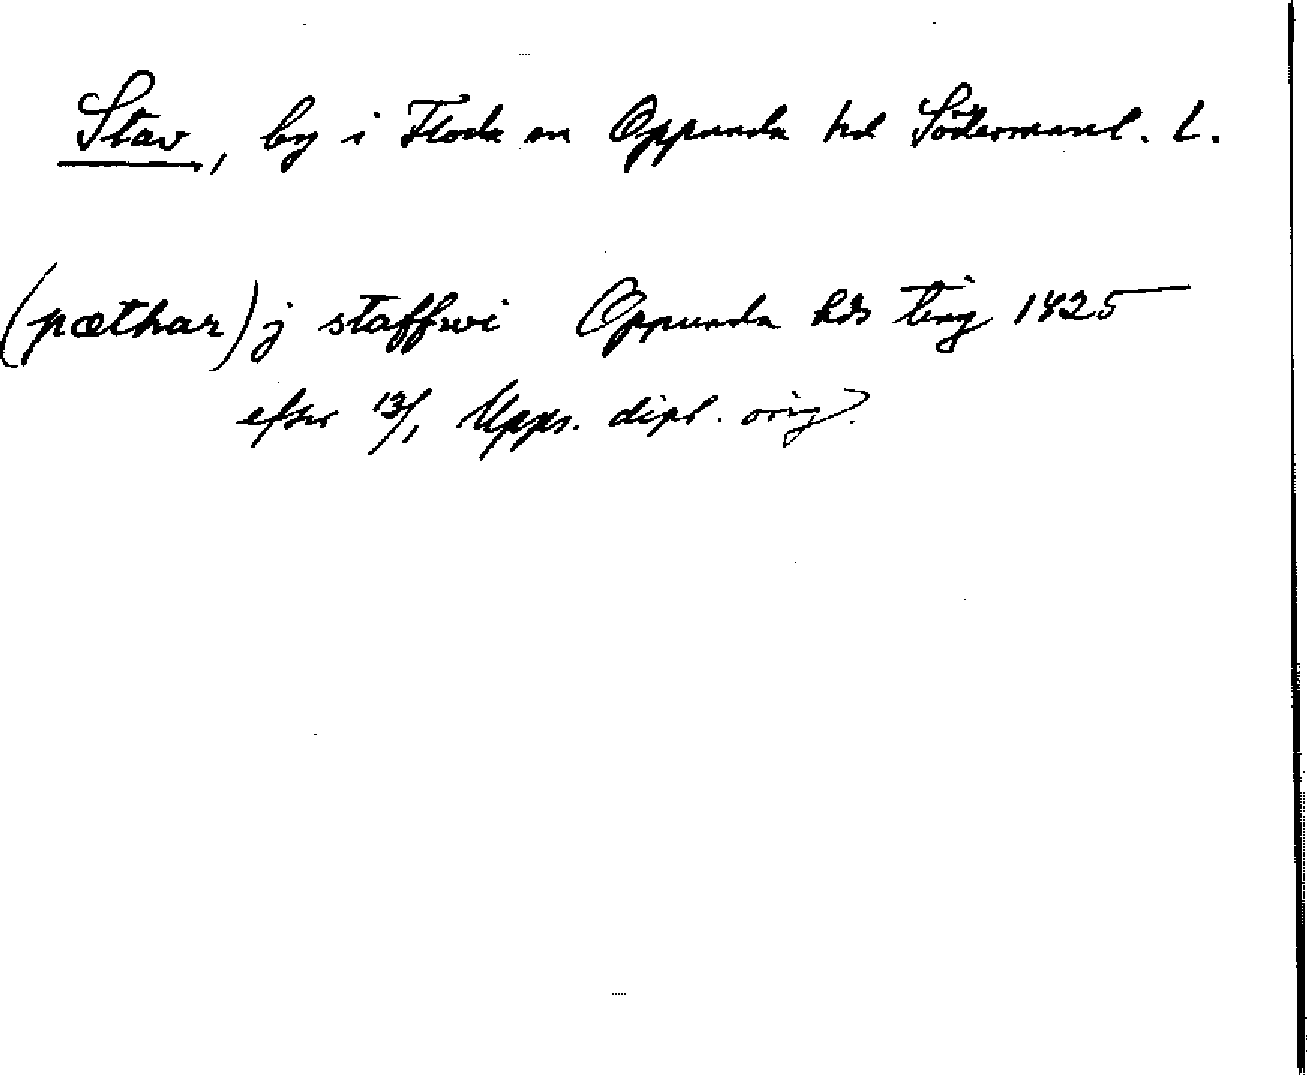 Stav, by i Floda sn Oppunda hd Södermanl. L.
(pæthar) j staffwi Oppunda hds ting 1425
efter 13/1 Upps. dipl. orig?